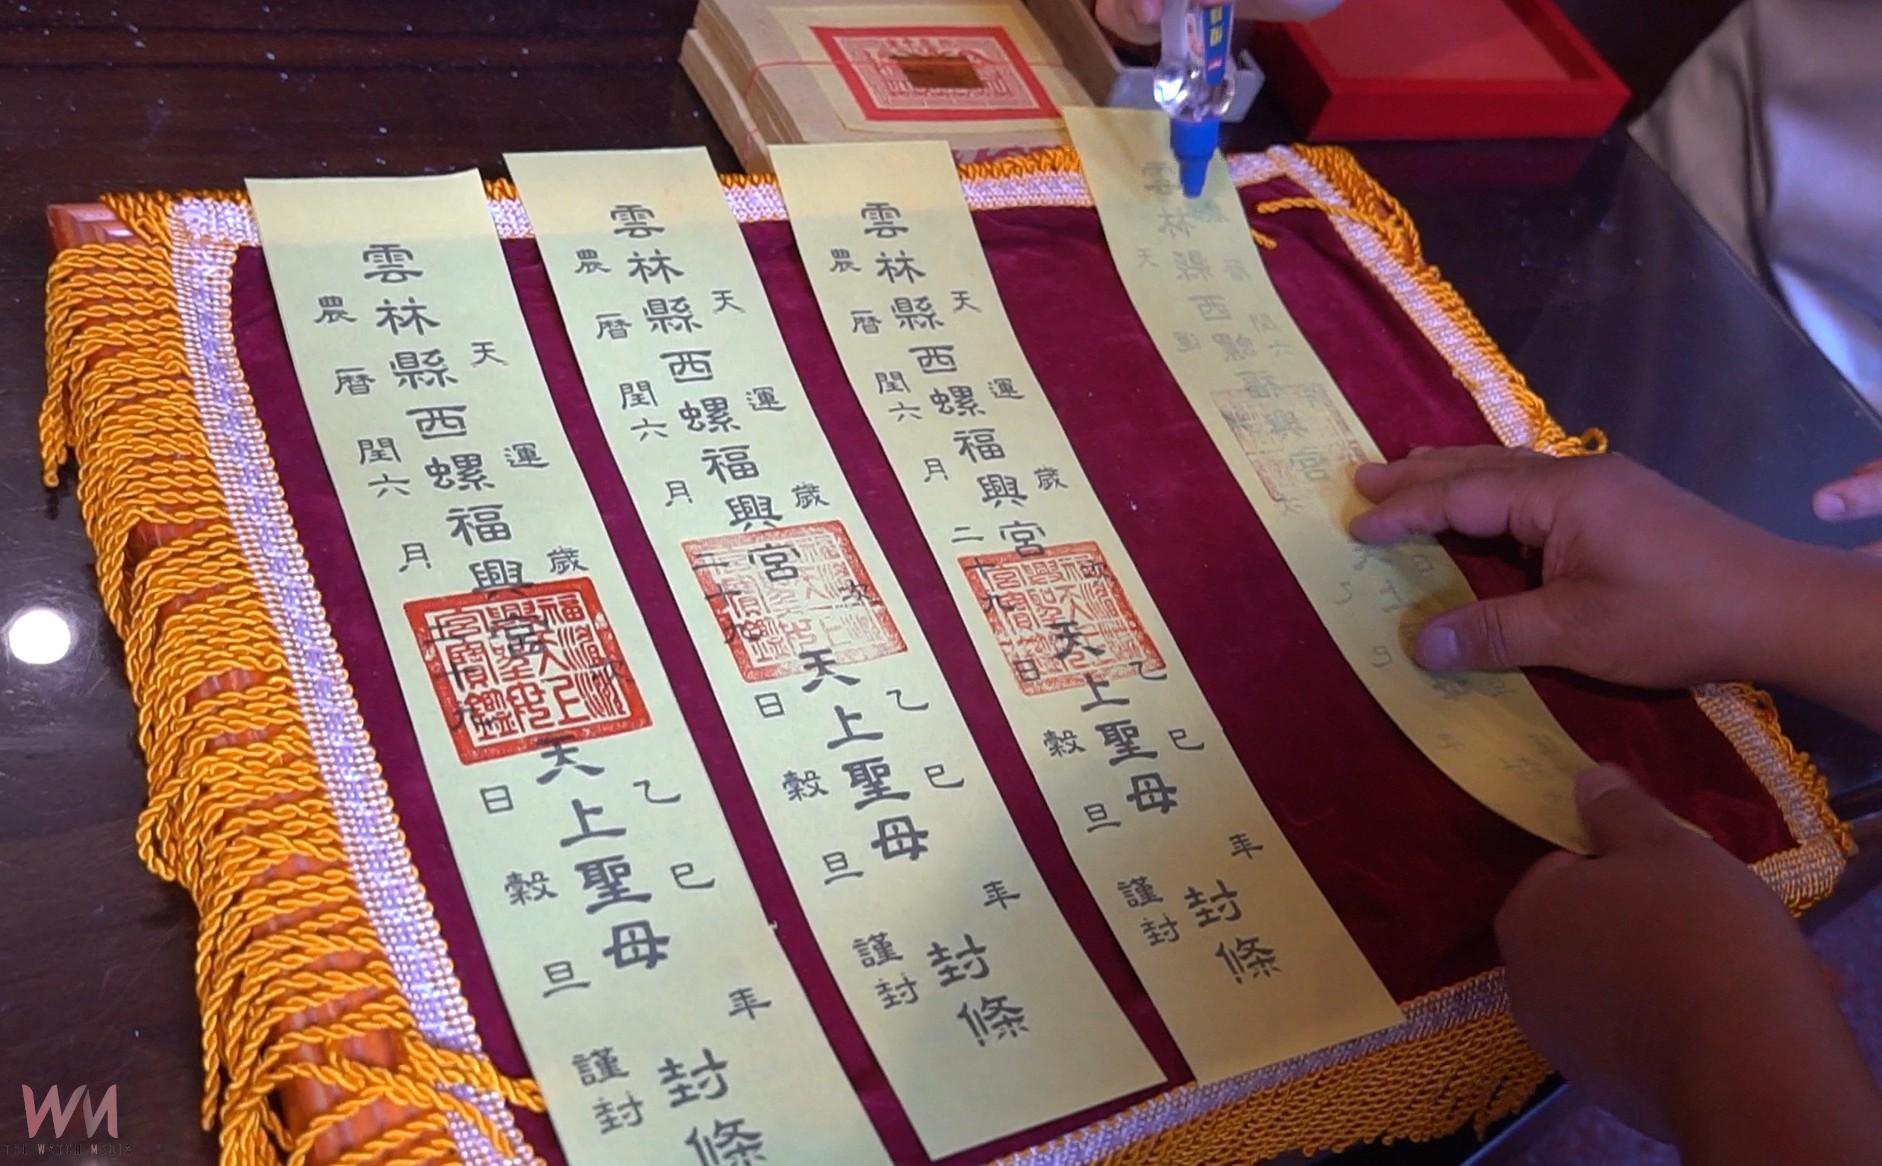 天運歲次乙巳年
雲林縣西螺福興宮天上聖母封條
農曆閏六月二十九日穀旦謹封
天運歲次乙巳年
雲林縣西螺福興宮天上聖母封條
農曆閏六月二十九日穀旦謹封
天運歲次乙巳年
雲林縣西螺福興宮天上聖母封條
農曆閏六月二十九日穀旦謹封
WM
THE WATCH MEDIA